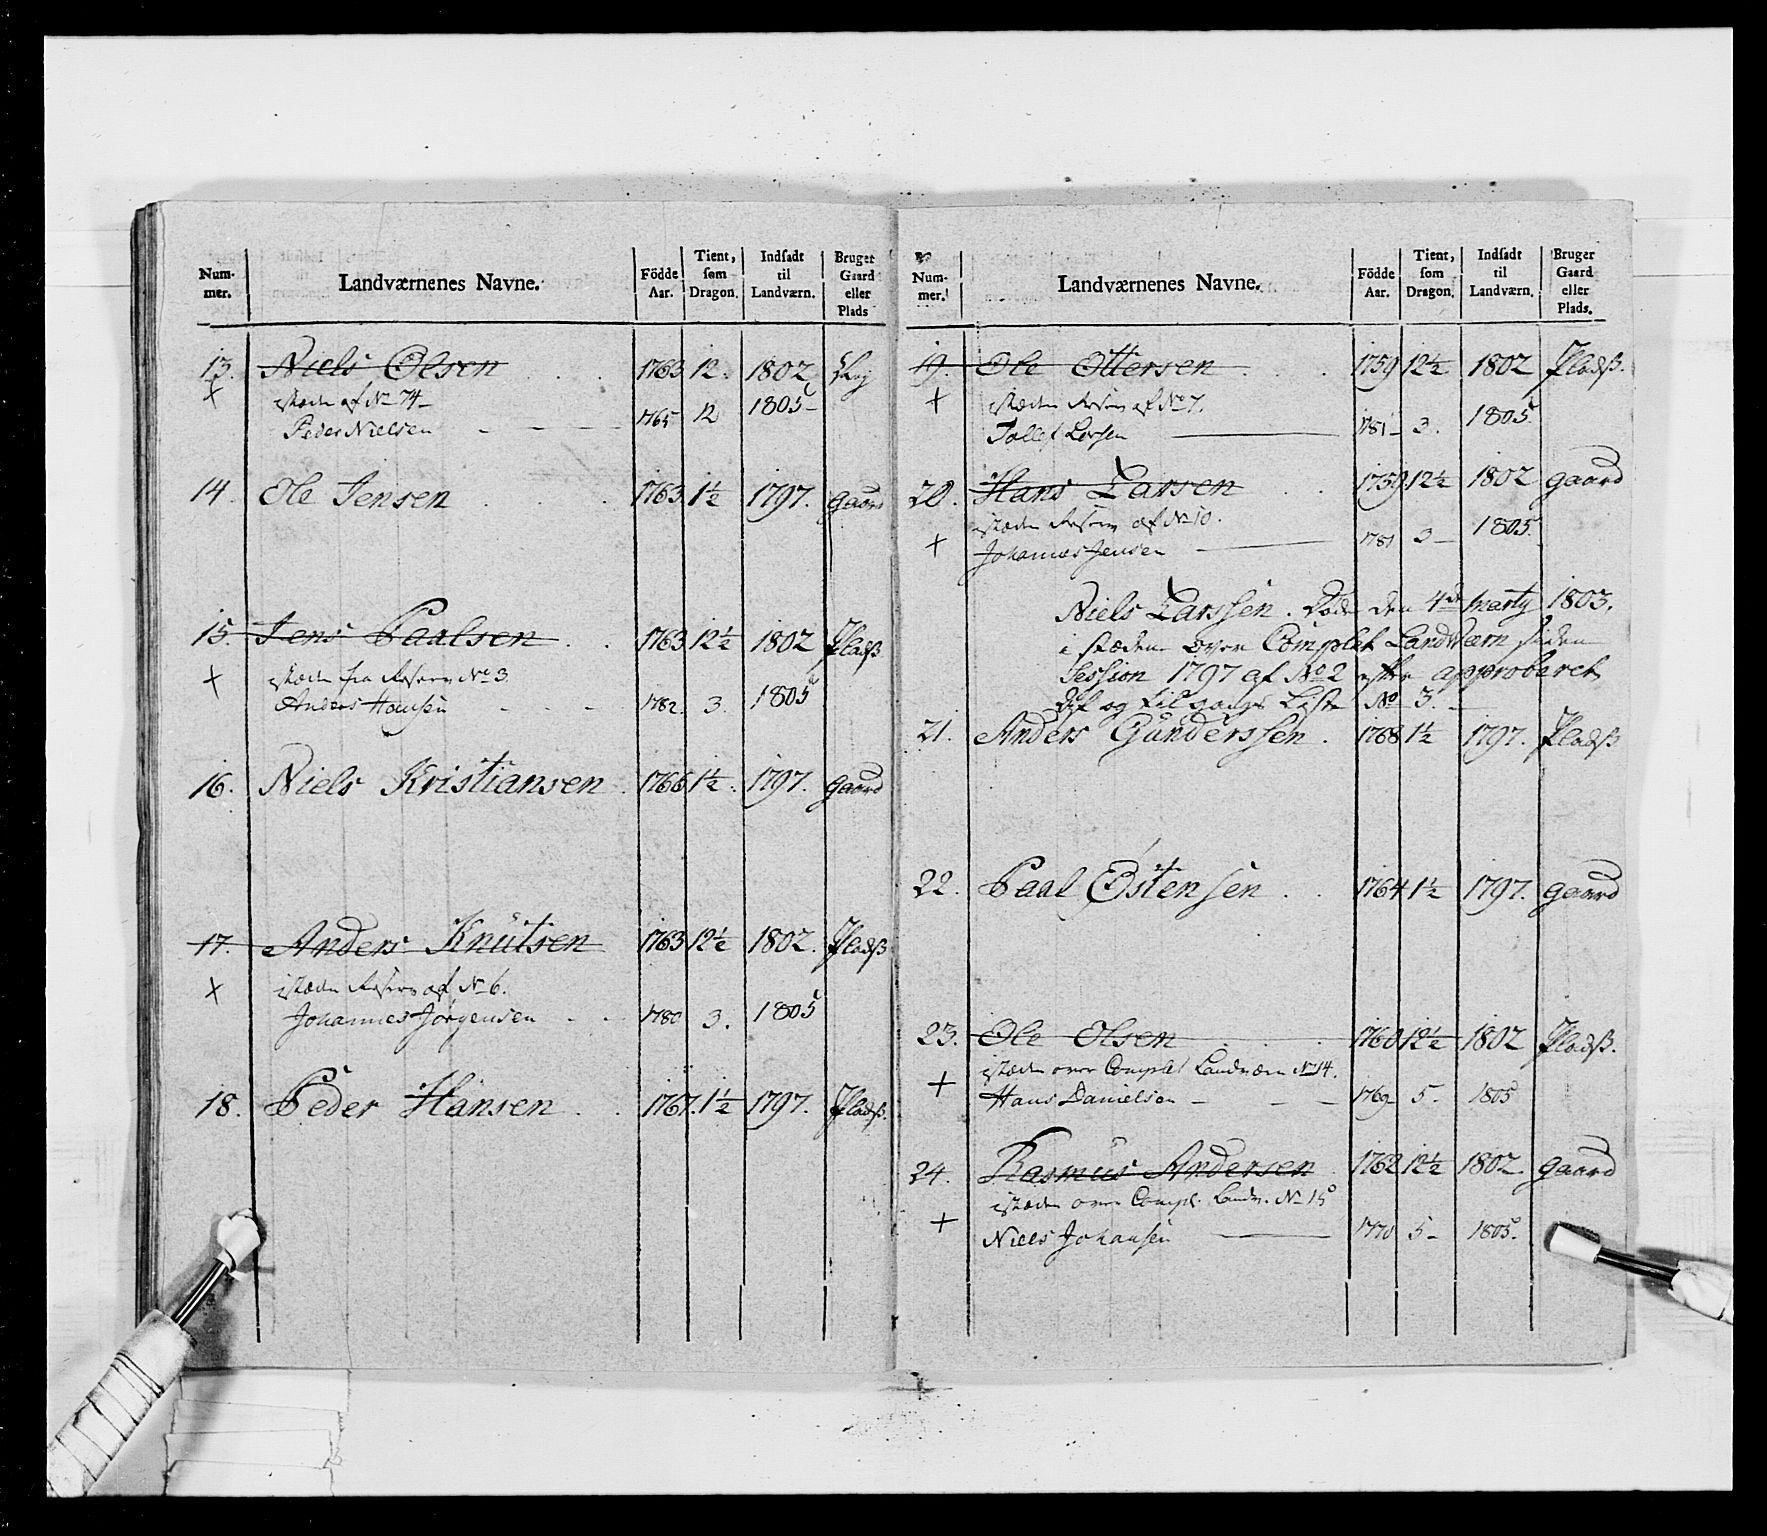 Num-mer. Landværnenes Navne. Födde Aar. Tient, som Dragon. Indsadt til Landværn. Bruger Gaard eller Plads
13. Niels Olsen 1763 12. 1802
+ istæden af No 74
Peder Nielsen 1765 12 1805
14. Ole Jensen 1763 1½ 1797. gaard
15. Jens Paalsen 1763 12½ 1802 Pladß
+ istæden fra Reserv No 3
Anders Hansen 1782. 3. 1805
16. Niels Kristiansen 1766 1½. 1797. gaard
17. Anders Knutsen 1763 12½ 1802. Pladß
+ istæden Reserv af No 6.
Johannes Jörgensen 1780 3. 1805
18. Peder Hansen 1767. 1½ 1797. Pladß.
Num-mer. Landværnenes Navne. Födde Aar. Tient, som Dragon. Indsadt til Landværn. Bruger Gaard eller Plads.
19. Ole Ottersen 1759 12½ 1802 Pladß.
+ istæden Reserv af No 7.
Tollef Larsen 1781 3. 1805.
20. Hans Larsen 1759 12½ 1802 gaard
istæden Reserv af No 10.
+ Johannes Jensen 1781 3 1805.
Niels Larssen. Döde den 4de Marty 1803.
i stæden over Complet Landværn siden
Session 1797 af No 2 efter approberet
Af og til gangs Liste No 3.
21. Anders Gunderssen. 1768 1½ 1797. Pladß
22. Paal Östensen 1764 1½ 1797. gaard
23. Ole Olsen 1760 12½ 1802 Pladß.
istæden over Complet Landværn No 14.
+ Hans Danielsen 1769 5. 1805
24. Rasmus Andersen 1762 12½ 1802. gaard
istæden over Compl. Landv. No 15
+ Niels Johansen 1770 5 1805.